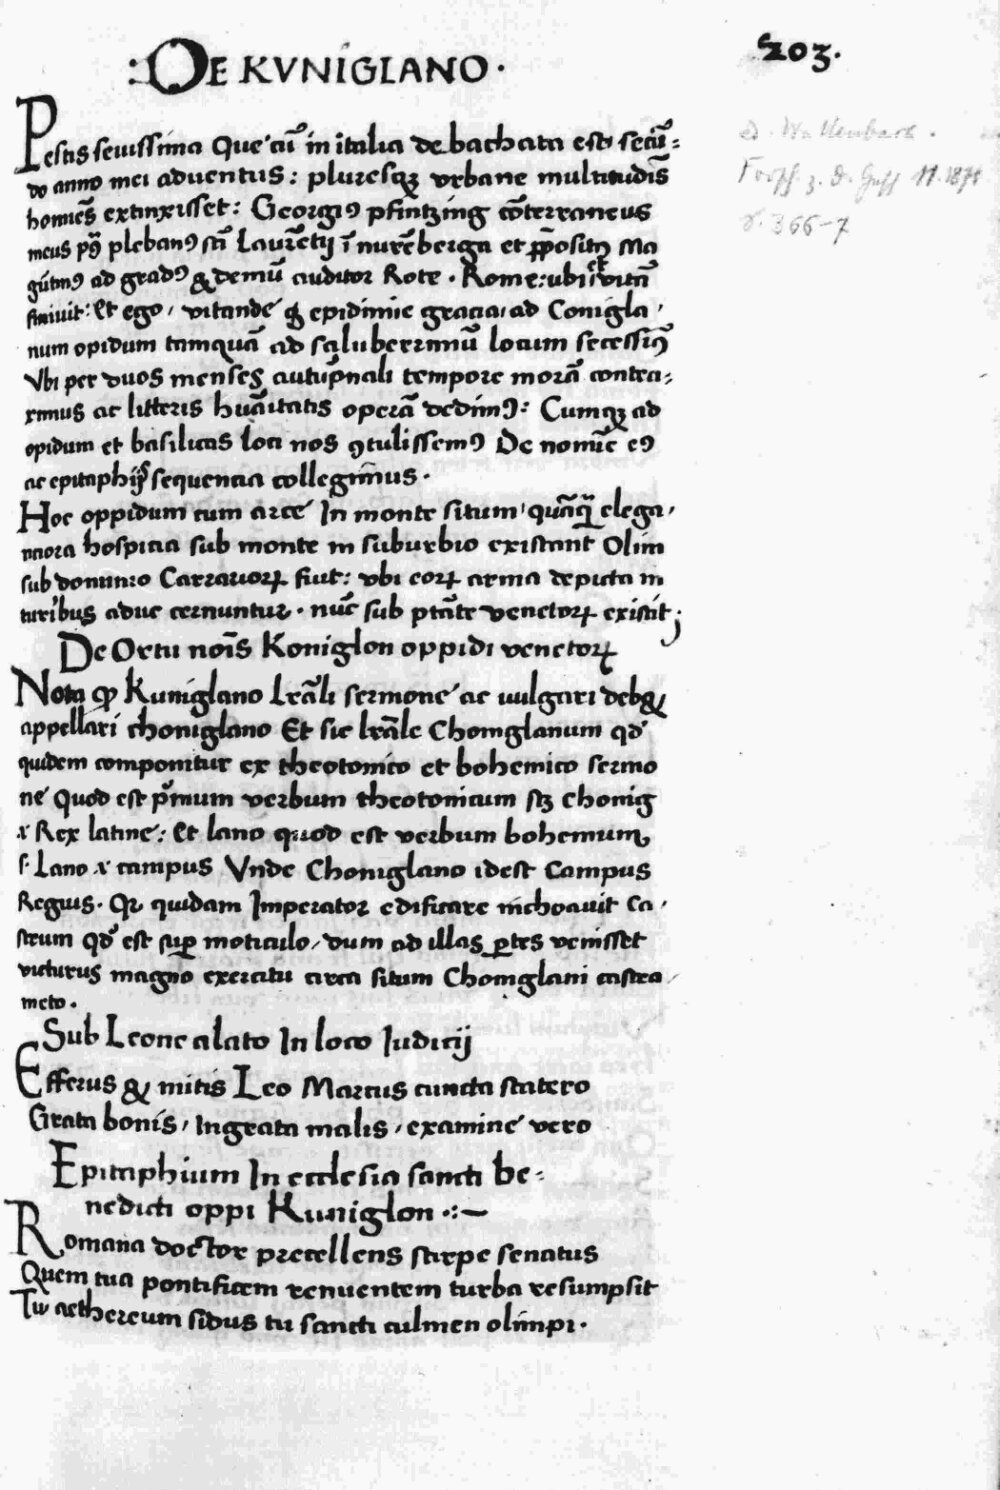 :DE KVNIGLANO·
203.
Pestis seuissima Que cū in italia debachata est secū=
do anno mei aduentus: pluresqȝ vrbane multitudīs
homiēs extinxisset: Georgiꝰ pfintzing cōterraneus
meus plebanꝰ scī Laurētij ī nurēberga et ꝓpositꝰ Ma
gūtinꝰ ad gradꝰ & demū auditor Rote · Rome: ubi et vitā
finiuit: Et ego, vitande epidimie gracia, ad Conigla,
num opidum tamquā ad saluberrimū locum secessiꝰ
Vbi per duos menses autūpnali tempore morā contra=
ximus ac litteris huāitatis operā dedimꝰ: Cumqȝ ad
opidum et basilicas loci nos ꝯtulissemꝰ De nomīe eꝰ
ac epitaphijs sequencia collegimus·
Hoc oppidum cum arce In monte situm, quāqȝ elega,
nciora hospicia sub monte in suburbio existant Olim
sub dominio Carrarioꝝ fiut: vbi eoꝝ arma depicta in
turribus aduc cernuntur · nūc sub ptāte venetoꝝ existit;
De Ortu noīs Koniglon oppidi venetoꝝ
Nota ꝙ Kuniglano lrāli sermone ac uulgari deb&
appellari choniglano Et sic lrāle Choniglanum qđ
quidem componitur ex theotonico et bohemico sermo
ne Quod est pʳmum verbum theotonicum sȝ chonig
.i. Rex latine: Et lano quod est verbum bohemum
s. Lano .i. campus Vnde Choniglano idest Campus
Regius. Qꝛ quidam Imperator edificare inchoauit Ca,
strum qđ est suꝑ moticulo, dum ad illas ꝑtes venisset
victurus magno exercitu circa situm Choniglani castra,
meto.
Sub Leone alato In loco Judicij
Efferus & mitis Leo Marcus cuncta statero
Grata bonis, Ingrata malis, examine vero
Epitaphium In ecclesia sancti be=
nedicti oppi Kuniglon ·:~
Romana doctor precellens stirpe senatus
Quem tua pontificem renuentem turba resumpsit
Tu aethereum sidus tu sancti culmen olimpi·